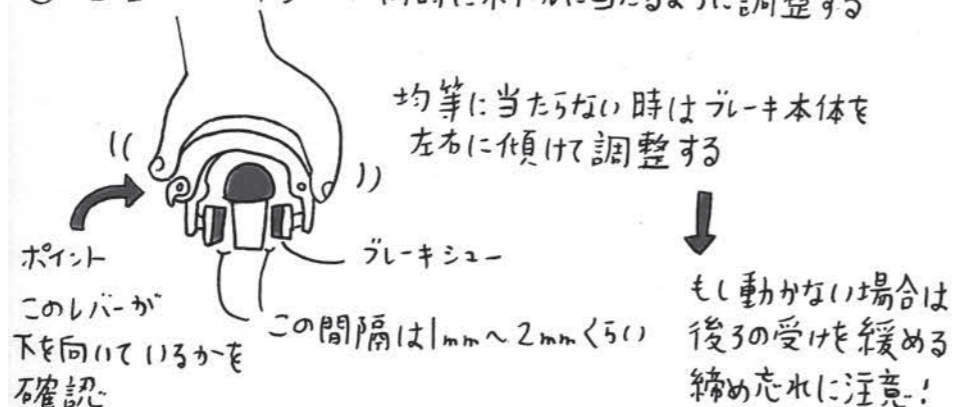 同時にホイールに当たるように調整する
均等に当たらない時はブレーキ本体を
左右に傾けて調整する
ポイント
このレバーが
下を向いているかを
確認
ブレーキシュー
この間隔は1mm～2mmくらい
もし動かない場合は
後ろの受けを緩める
締め忘れに注意！